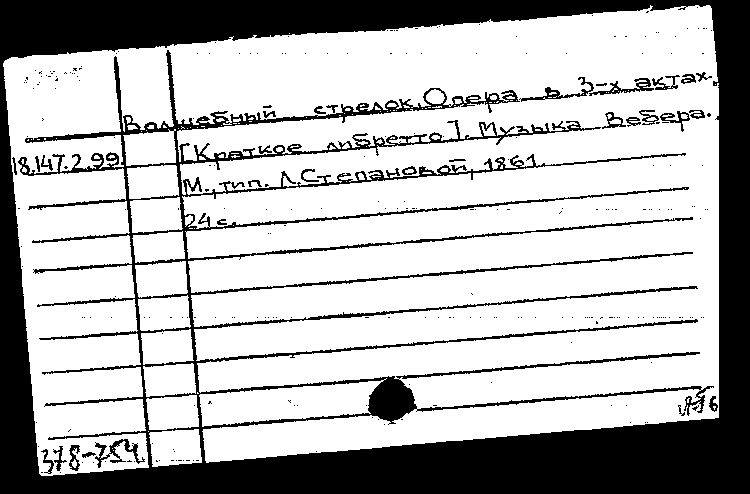 Волшебный стрелок. Опера в 3-х актах.
18.147.2.99 [Краткое либретто]. Музыка Вебера.
М., тип. Л.Степановой, 1861.
24 с.
378-754